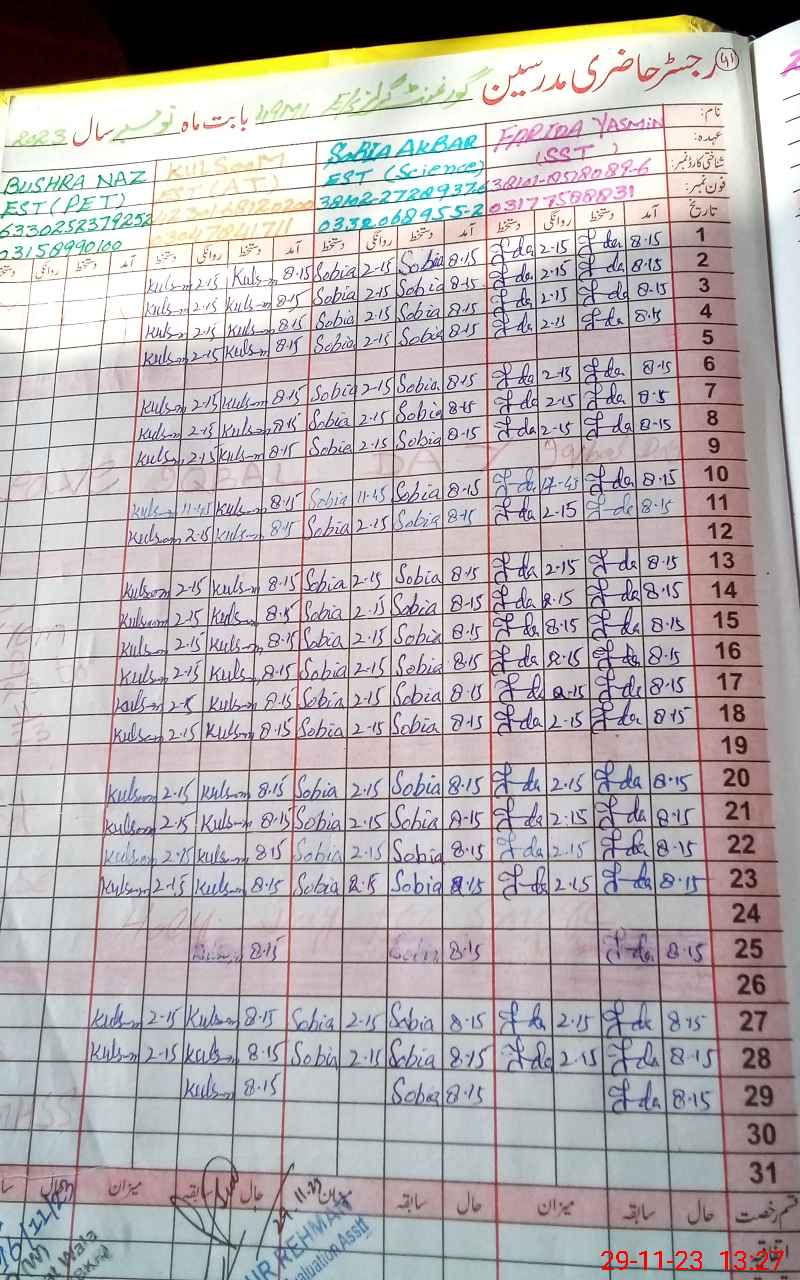 رجسٹر حاضری مدرسین گورنمنٹ گرلز بابت ماہ نومبر سال 2023
41
نام:
عہدہ:
شناختی کارڈ نمبر:
فون نمبر:
تاریخ
FARIDA YASMIN
(SST)
38101-0517089-6
03177588831
SOBIA AKBAR
EST (Science)
KULSOOM
EST (AT)
03047841711
BUSHRA NAZ
EST (PET)
6330252379252
03158990100
آمد دستخط روانگی دستخط آمد دستخط روانگی دستخط آمد دستخط روانگی دستخط آمد دستخط روانگی
1 8·15 F-da 2-15 F-da 8·15 Sobia 2-15 Sobia 8·15 Kulsoom 2-15 Kulsoom
2 8·15 F-da 2·15 F-da 8·15 Sobia 2-15 Sobia 8·15 Kulsoom 2-15 Kulsoom
3 8·15 F-da 2·15 F-da 8·15 Sobia 2-15 Sobia 8·15 Kulsoom 2-15 Kulsoom
4 8·15 F-da 2-15 F-da 8·15 Sobia 2-15 Sobia 8·15 Kulsoom 2-15 Kulsoom
5
6 8·15 F-da 2·15 F-da 8·15 Sobia 2-15 Sobia 8·15 Kulsoom 2-15 Kulsoom
7 8·15 F-da 2·15 F-da 8·15 Sobia 2·15 Sobia 8·15 Kulsoom 2-15 Kulsoom
8 8-15 F-da 2-15 F-da 8-15 Sobia 2-15 Sobia 8·15 Kulsoom 2-15 Kulsoom
9 IQBAL DAY
10 8·15 F-da F-da 8·15 Sobia 11-45 Sobia 8·15 Kulsoom 11-45 Kulsoom
11 8·15 F-da 2·15 F-da 8·15 Sobia 2·15 Sobia 8·15 Kulsoom 2-15 Kulsoom
12
13 8·15 F-da 2-15 F-da 8·15 Sobia 2-15 Sobia 8·15 Kulsoom 2-15 Kulsoom
14 8·15 F-da 2·15 F-da 8-15 Sobia 2·15 Sobia 8·15 Kulsoom 2-15 Kulsoom
15 8·15 F-da 8·15 F-da 8·15 Sobia 2·15 Sobia 8·15 Kulsoom 2·15 Kulsoom
16 8·15 F-da 2·15 F-da 8·15 Sobia 2-15 Sobia 8·15 Kulsoom 2-15 Kulsoom
17 8·15 F-da 2-15 F-da 8·15 Sobia 2-15 Sobia 8·15 Kulsoom Kulsoom
18 8·15 F-da 2·15 F-da 8·15 Sobia 2-15 Sobia 8·15 Kulsoom 2·15 Kulsoom
19
20 8·15 F-da 2·15 F-da 8·15 Sobia 2·15 Sobia 8·15 Kulsoom 2·15 Kulsoom
21 8·15 F-da 2·15 F-da 8-15 Sobia 2·15 Sobia 8·15 Kulsoom 2·15 Kulsoom
22 8·15 F-da 2·15 F-da 8·15 Sobia 2·15 Sobia 8·15 Kulsoom 2·15 Kulsoom
23 8·15 F-da 2·15 F-da 8·15 Sobia 2·15 Sobia 8·15 Kulsoom 2-15 Kulsoom
24
25 8·15 F-da 8·15 Sobia 8·15
26
27 8·15 F-da 2·15 F-da 8·15 Sobia 2·15 Sobia 8·15 Kulsoom 2-15 Kulsoom
28 8·15 F-da 2·15 F-da 8·15 Sobia 2·15 Sobia 8·15 Kulsoom 2-15 Kulsoom
29 8·15 F-da 8·15 Sobia 8·15 Kulsoom
30
31
قسم رخصت حال سابقہ میزان حال سابقہ میزان حال سابقہ میزان حال
29.11.23
UR REHMAN
Evaluation Asstt
29-11-23 13:27